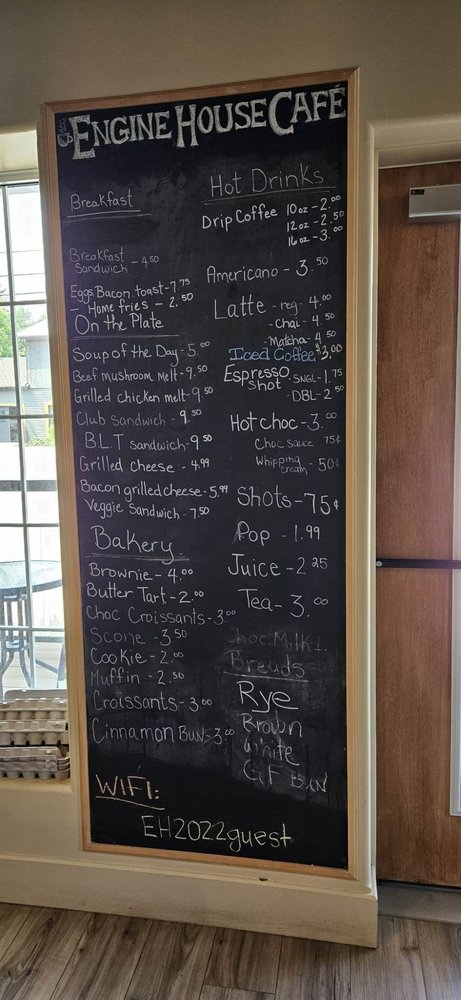 ENGINE HOUSE CAFÉ
Breakfast
Breakfast
Sandwich - 4.50
Eggs Bacon, toast - 7.75
- Home fries - 2.50
On the Plate
Soup of the Day - 5.00
Beef mushroom melt - 9.50
Grilled chicken melt - 9.50
Club Sandwich - 9.50
B.L.T sandwich - 9.50
Grilled cheese - 4.99
Bacon grilled cheese - 5.99
Veggie Sandwich - 7.50
Bakery
Brownie - 4.00
Butter Tart - 2.00
Choc Croissants - 3.00
Scone - 3.50
Cookie - 2.00
Muffin - 2.50
Croissants - 3.00
Cinnamon Bun - 3.00
Hot Drinks
Drip Coffee 10oz - 2.00
12oz - 2.50
16oz - 3.00
Americano - 3.50
Latte - reg - 4.00
- Chai - 4.50
- Matcha - 4.50
Iced Coffee $3.00
Espresso
shot - SNGL - 1.75
- DBL - 2.50
Hot choc - 3.00
Choc sauce 75¢
Whipping
cream - 50¢
Shots - 75¢
Pop - 1.99
Juice - 2.25
Tea - 3.00
Choc. Milk
Breads
Rye
Brown
White
GF BUN
WIFI:
EH2022guest